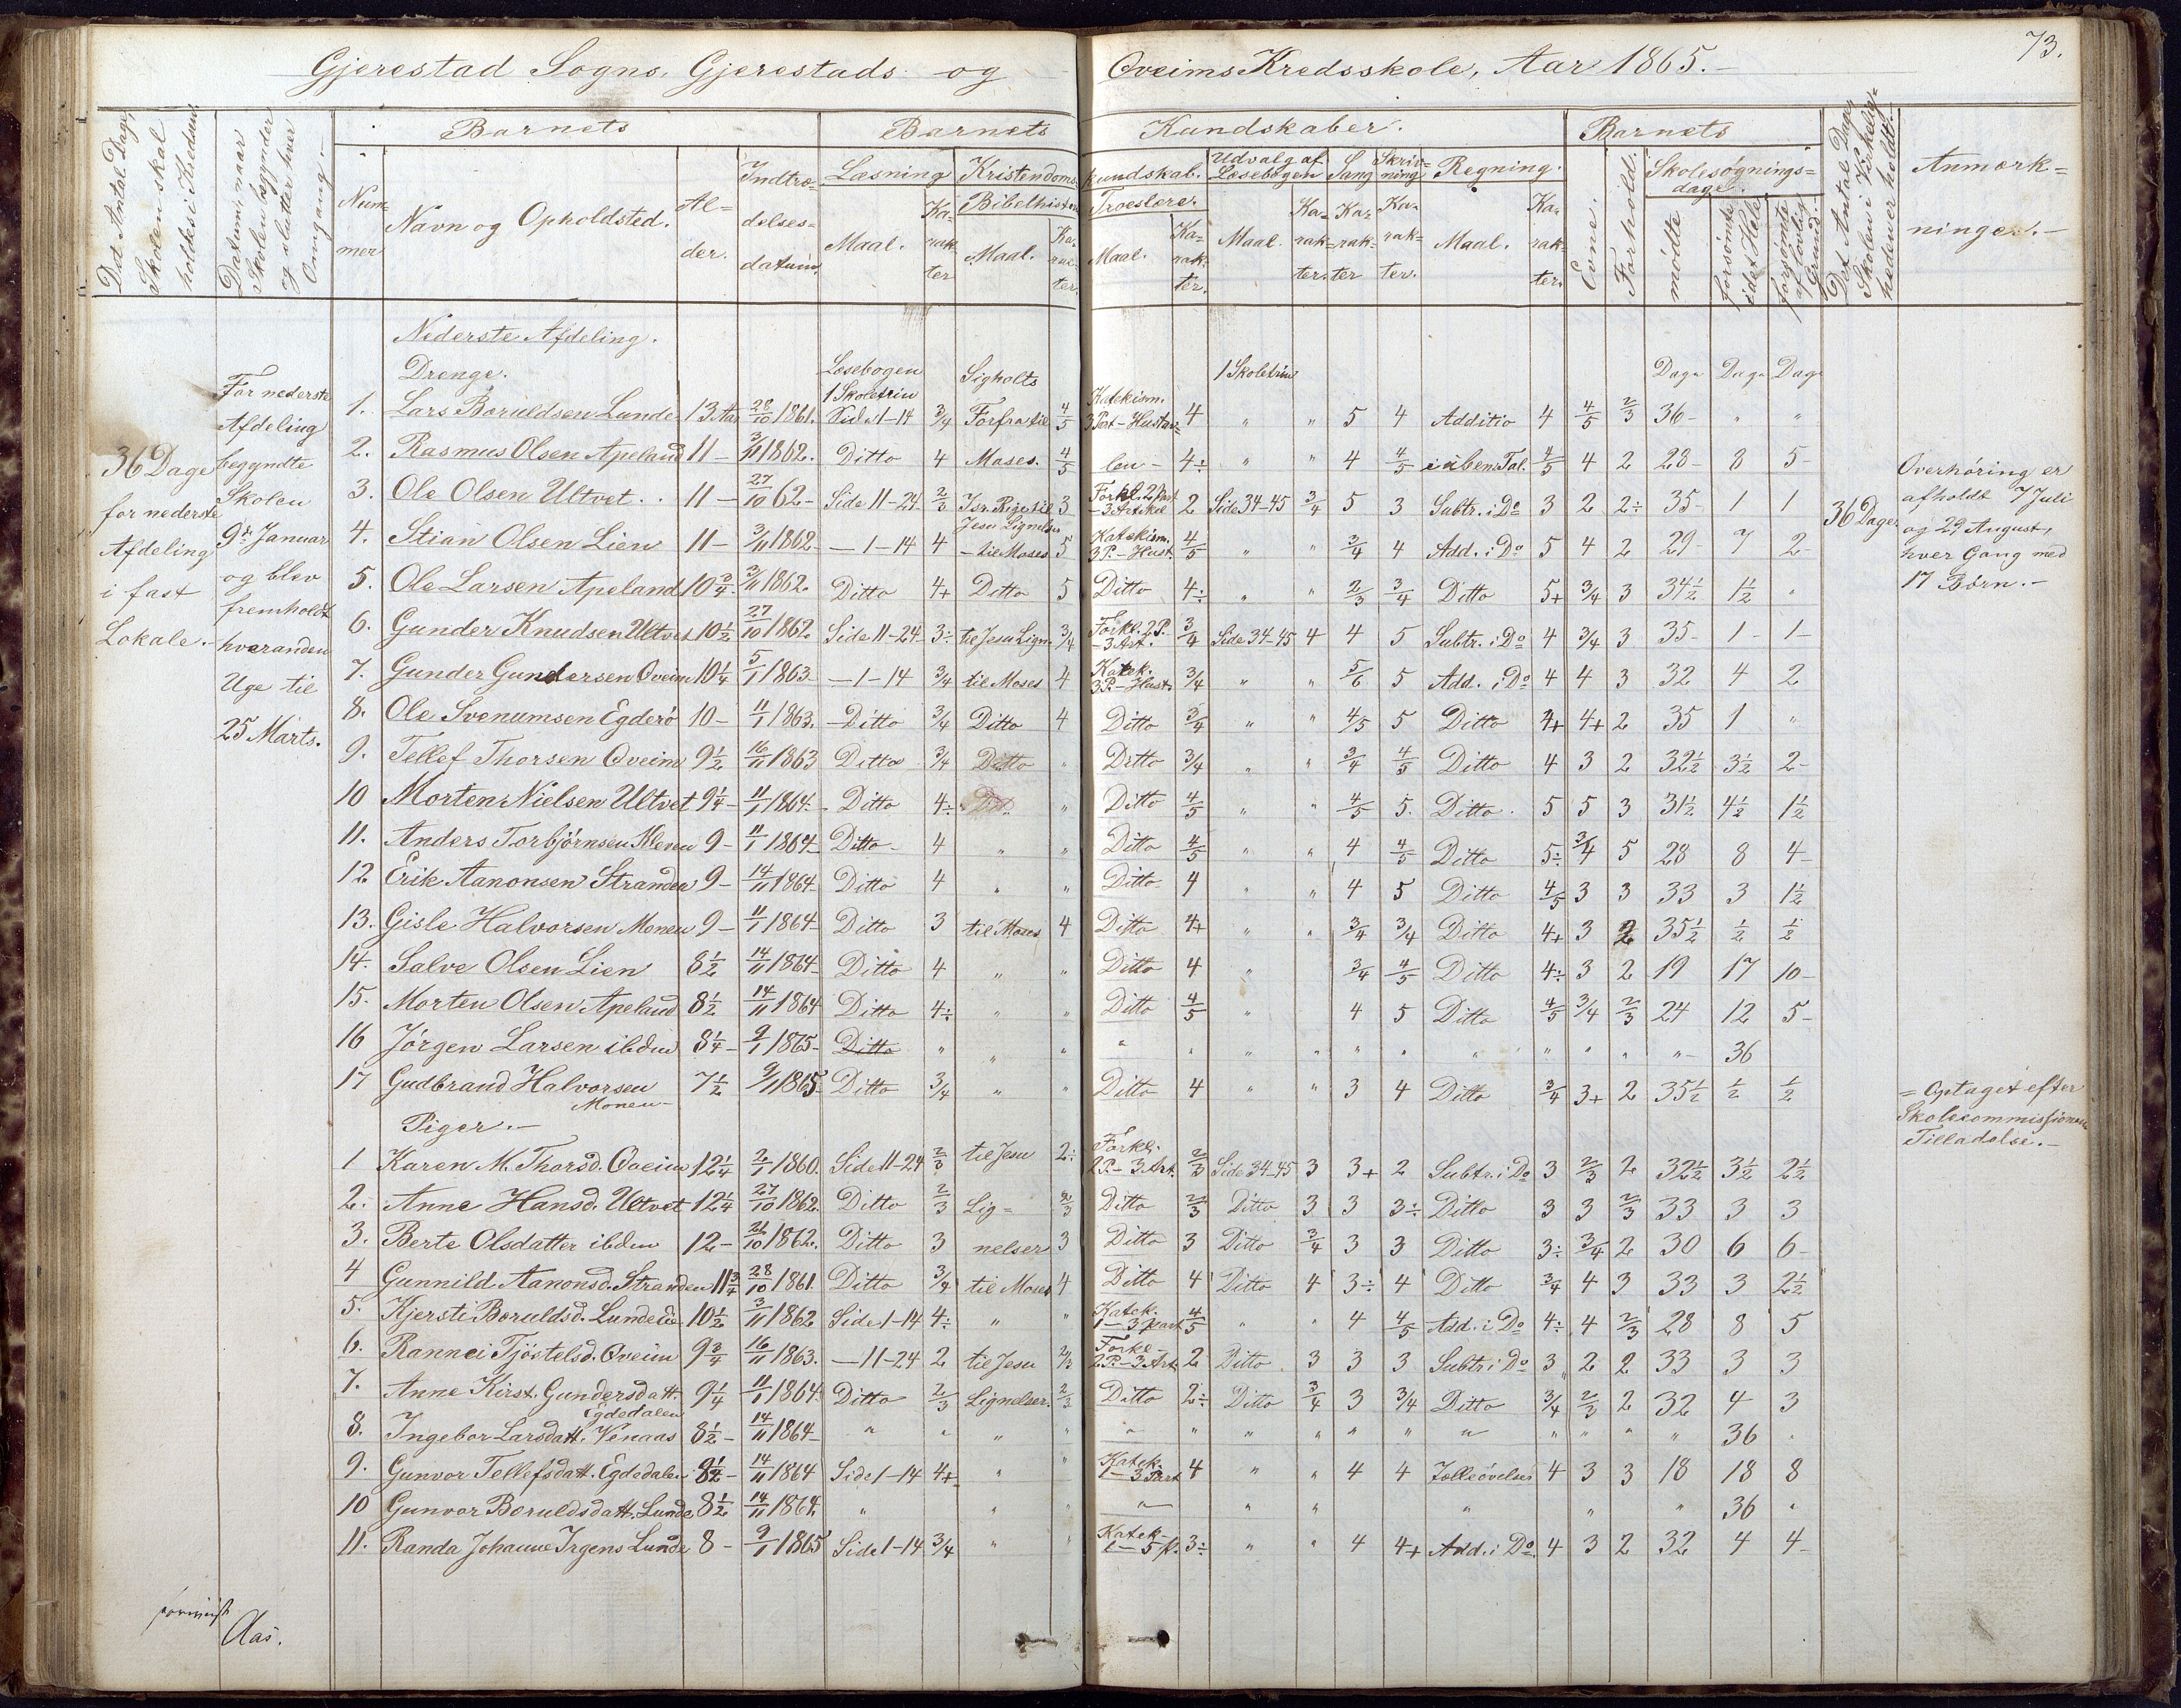 73.
Gjerestad Sogns, Gjerestads og Oveims Kredsskole, Aar 1865.
Det Antal Dage, Skolen skal holdes i Kredsen
Datum, naar Skolen begynder og slutter hver Omgang.
Barnets
Barnets Kundskaber.
Barnets
Det Antal Dage Skolen i Virkelig=heden er holdt.
Anmærk=ninger.
Num=mer
Navn og Opholdsted.
Al=der.
Indtræ=delses=datum.
Læsning
Kristendoms kundskab.
Udvalg af Læsebogen
Sang
Skriv=ning
Regning.
Evne.
Forhold.
Skolesøgnings=dage.
Maal.
Ka=rak=ter
Bibelhistorie
Maal.
Ka=rak=ter.
Troeslære.
Maal.
Ka=rak=ter.
Maal.
Ka=rak=ter.
Ka=rak=ter
Ka=rak=ter.
Maal.
Ka=rak=ter.
mødte
forsømte i det Hele
forsømte af lovlig Grund.
36 Dage for nederste Afdeling i fast Lokale.
For nederste Afdeling begyndte Skolen 9de Januar og blev fremholdt hveranden Uge til 25 Marts.
Nederste Afdeling.
Drenge. Læsebogen 1 Skoletrin Sigholts 1 Skoletrin Dage Dage Dage
1. Lars Boruldsen Lunde 13 Aar 28/10 1861. Side 1-14 3/4 Forfra til 4/5 Katekism. 3 Part - Hustav= 4 " " 5 4 Additio 4 4/5 2/3 36- " "
2. Rasmus Olsen Apeland 11 - 3/11 1862. Ditto 4 Moses. 4/5 len - 4÷ " " 4 4/5 i uben. Tal. 4/5 4 2 28- 8 5-
3. Ole Olsen Ultvet .. 11 - 27/10 62- Side 11-24 2/3 Isr. Rige til 3 Forkl. 2 Part - 3 Artikel 2 Side 34-45 3/4 5 3 Subtr. i Do 3 2 2÷ 35- 1 1
4. Stian Olsen Lien 11 - 3/11 1862- - 1-14 4 Jesu Lignelser - til Moses 5 Katekism. 3 P. - Hust. 4/5 " " 3/4 4 Add. i Do 5 4 2 29- 7 2-
5. Ole Larsen Apeland 10 3/4. 3/11 1862. Ditto 4+ Ditto 5 Ditto 4÷ " " 2/3 3/4 Ditto 5+ 3/4 3 34 1/2 1 1/2 "
6. Gunder Knudsen Ultvet 10 1/2 27/10 1862. Side 11-24 3÷ til Jesu Lign. 3/4 Forkl. 2 P. - 3 Art. 3/4 Side 34-45 4 4 5 Subtr. i Do 4 3/4 3 35- 1- 1-
7. Gunder Gundersen Oveim 10 1/4 5/1 1863- - 1-14 3/4 til Moses 4 Katek. 3 P. - Hust. 3/4 " " 5/6 5 Add. i Do 4 4 3 32 4 2
8. Ole Svenumsen Egderø 10 - 11/1 1863. - Ditto 3/4 Ditto 4 Ditto 3/4 " " 4/5 5 Ditto 4+ 4+ 2 35 1 "
9. Tellef Thorsen Oveim 9 1/2 16/11 1863 Ditto 3/4 Ditto " Ditto 3/4 " " 3/4 4/5 Ditto 4 3 2 32 1/2 3 1/2 2-
10 Morten Nielsen Ultvet 9 1/4 - 11/1 1864 - Ditto 4÷ " Ditto 4/5 " " 4/5 5. Ditto. 5 5 3 31 1/2 4 1/2 1 1/2
11. Anders Torbjørnsen Kleven 9 - 11/1 1864 Ditto - 4 " " Ditto 4/5 " " 4 4/5 Ditto 5÷ 3/4 5 28 8 4-
12 Erik Aanonsen Stranden 9 - 14/11 1864 Ditto 4 " " Ditto 4 " " 4 5 Ditto 4/5 3 3 33 3 1 1/2
13. Gisle Halvorsen Monen 9 - 11/1 1864- Ditto 3 til Moses 4 Ditto 4+ " " 3/4 3/4 Ditto 4+ 3 2 35 1/2 1/2 1/2
14. Salve Olsen Lien 8 1/2 14/11 1864- Ditto 4 " " Ditto 4 " 3/4 4/5 Ditto 4÷ 3 2 19 17 10-
15. Morten Olsen Apeland 8 1/2 14/11 1864 Ditto 4÷ " " Ditto 4/5 " 4 5 Ditto 4/5 3/4 2/3 24 12 5-
16 Jørgen Larsen ibdm 8 1/4 - 9/1 1865- Ditto " " " " " " " " " " " " " " 36
17 Gudbrand Halvorsen Monen- 7 1/2 9/1 1865 Ditto 3/4 " " Ditto 4 " " 3 4 Ditto 3/4 3+ 2 35 1/2 1/2 1/2
Piger.
1 Karen M. Thorsd. Oveim 12 1/4 2/1 1860. Side 11-24 2/3 til Jesu 2÷ Forkl. 2 P. - 3 Art. 2/3 Side 34-45 3 3+ 2 Subtr. i Do 3 2/3 2 32 1/2 3 1/2 2 1/2
2. Anne Hansd. Ultvet 12 1/4 27/10 1862. Ditto 2/3 Lig= 2/3 Ditto 2/3 Ditto 3 3 3÷ Ditto 3 3 2/3 33 3 3
3. Berte Olsdatter ibdm 12 - /10 1862. Ditto 3 nelser 3 Ditto 3 Ditto 3/4 3 3 Ditto 3÷ 3/4 2 30 6 6-
4 Gunnild Aanonsd. Stranden 11 3/4 28/10 1861. Ditto 3/4 til Moses 4 Ditto 4 Ditto 4 3÷ 4 Ditto 3/4 4 3 33 3 2 1/2
5. Kjersti Boruldsd. Lundelie 10 1/2 3/11 1862 Side 1-14 4÷ " " Katek. 1-3 part 4/5 " " 4 4/5 Add. i Do 4÷ 4 2/3 28 8 5
6. Rannei Tjöstelsd. Oveim 9 3/4 16/11 1863. - 11-24 2 til Jesu 2/3 Forkl- 2 P. - 3 Art. 2 Ditto 3 3 3 Subtr. i Do 3 2 2 33 3 3
7. Anne Kirst. Gundersdatt. Egdedalen 9 1/4 11/1 1864 Ditto 2/3 Lignelser. 2/3 Ditto 2÷ Ditto 3/4 3 3/4 Ditto 3/4 2/3 2 32 4 3
8. Ingebor Larsdatt. Venaas 8 1/2 - 14/11 1864- " " " " " " " " " " " " " " " 36 "
9. Gunvor Tellefsdatt. Egdedalen 14/11 1864 Side 1-14 4+ " " Katek. 1-3 Part 4 " " 4 4 Tælleøvelser 4 3 3 18 18 8
10 Gunvor Boruldsdatt. Lunde 8 1/2 14/11 1864. " " " " " " " " " 36 "
11. Randa Johanne Irgens Lunde 8 - 9/1 1865 Side 1-14 3/4 " " Katek- 1-5 p. 3÷ " " 4 4+ Add. i Do. 4 3 2 32 4 4-
36 Dage
Overhøring er afholdt 7 Juli og 29 August, hver Gang med 17 Børn.-
= Optaget efter Skolecommissionens Tilladelse.-
Aas.